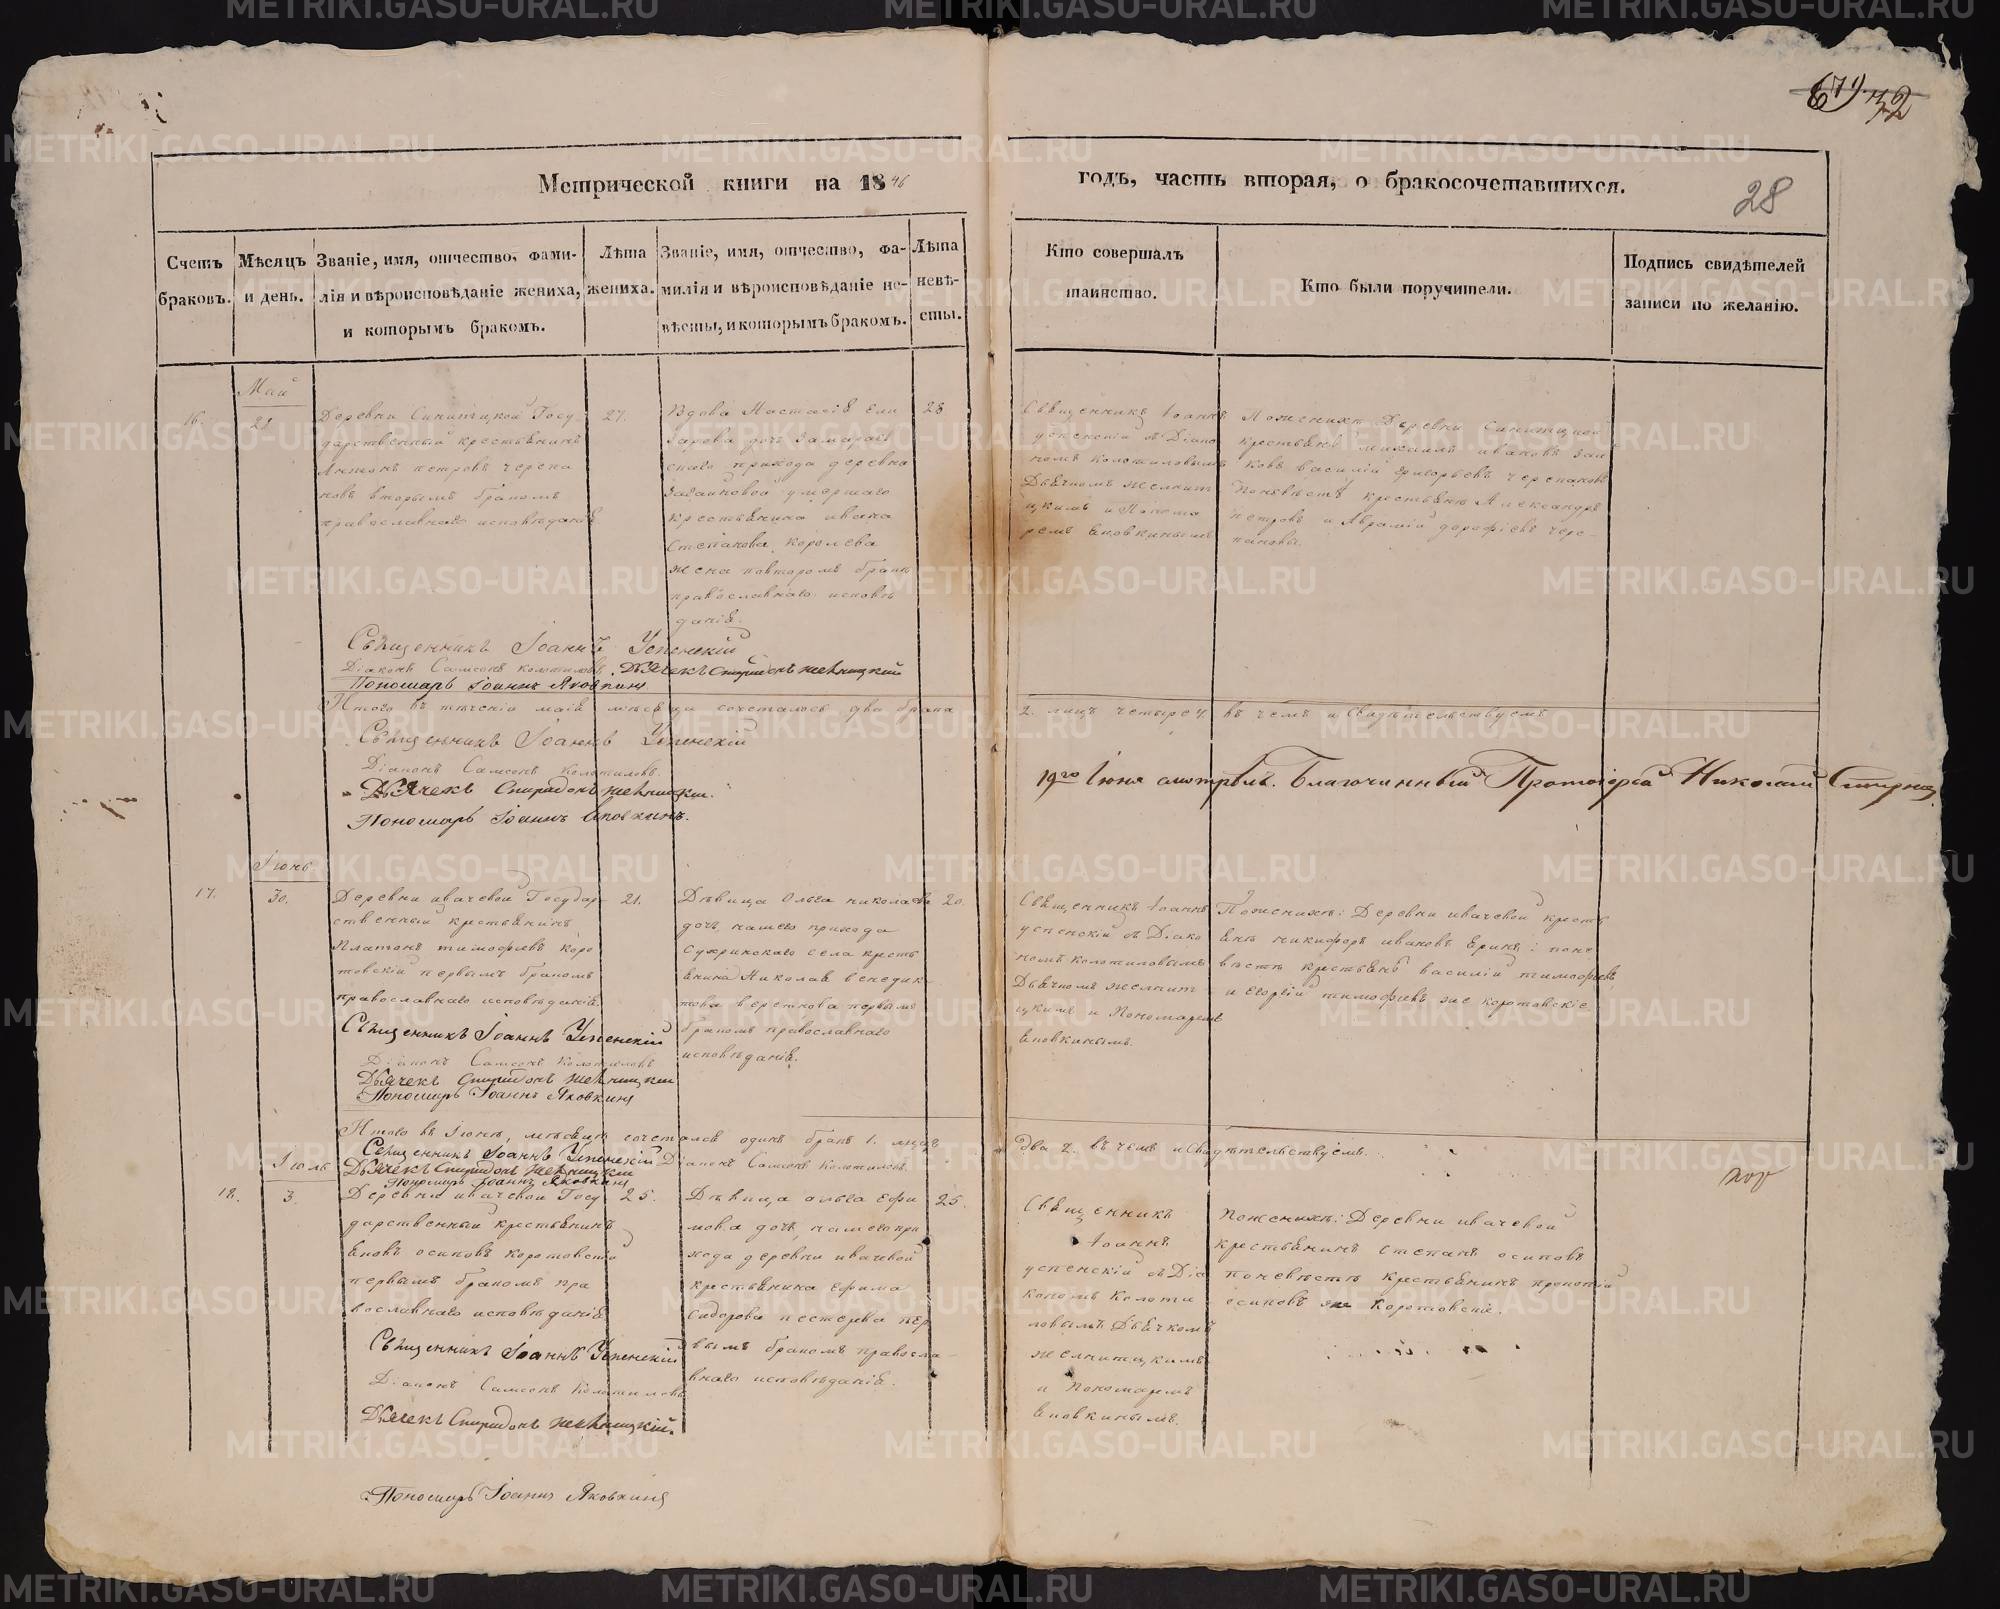 Метрической книги на 1846
годъ, часть вторая, о бракосочетавшихся.
28
Счетъ браковъ.
Мѣсяцъ и день.
Званіе, имя, отчество, фами-
лія и вѣроисповѣданіе жениха,
и которымъ бракомъ.
Лѣта
жениха.
Званіе, имя, отчество, фа-
милія и вѣроисповѣданіе не-
вѣсты, и которымъ бракомъ.
Лѣта
невѣ-
сты.
Кто совершалъ
таинство.
Кто были поручители.
Подпись свидѣтелей
записи по желанію.
Май
16.
28
Деревни Синитцкой Госу
дарственный крестьянинъ
Антонъ петровъ черепа
новъ вторымъ бракомъ
православнаго исповѣданія
27.
Вдова Настасія Ели
зарова дочь Замараев
скаго прихода деревни
умершаго
крестьянина ивана
Степанова королева
жена повторомъ бракѣ
православнаго исповѣ
данія.
28
Священникъ Іоаннъ
успенскій съ Діако
номъ колотиловымъ
Дьячкомъ желнит
цкимъ и Понома
ремъ яковкинымъ
Пожених Деревни Синитцкой
крестьяне михаилъ ивановъ заи
ковъ василій григорьевъ черепановъ
Поневѣстѣ крестьяне Александръ
петровъ и Аврамій дорофѣевъ чере-
пановы.
Священникъ Іоаннъ Успенскій
Діаконъ Самсонъ колотиловъ. Дьячекъ Спиридонъ желницкій
Пономарь Іоаннъ Яковкинъ
Итого въ теченіи маія мѣсяца сочеталось два брака
2. лицъ четыре 4. въ чемъ и Свидѣтельствуемъ
Священникъ Іоаннъ Успенскій
Діаконъ Самсонъ колотиловъ.
Дьячекъ Спиридонъ желницкій.
Пономарь Іоаннъ Яковкинъ.
19го Іюня смотрѣлъ. Благочинный Протоіерей Николай
Іюнь
17.
30.
Деревни ивачевой Государ-
ственный крестьянинъ
Платонъ тимофѣевъ коро
товскій первымъ бракомъ
православнаго исповѣданія
21.
Дѣвица Ольга николаева
дочь, нашего прихода
Сухринскаго села кресть
янина Николая венедик-
това веретнова первымъ
бракомъ православнаго
исповѣданія.
20.
Священникъ Іоаннъ
успенскій съ Діако
номъ колотиловымъ
Дьячкомъ желнит
цкимъ и Пономаремъ
яковкинымъ.
Пожених: Деревни ивачевой кресть
янъ никифоръ ивановъ Ерин: поне
вѣстѣ крестьяне василій тимофѣевъ
и егорій тимофѣевъ же коротовскіе
Священникъ Іоаннъ Успенскій
Діаконъ Самсонъ Колотиловъ
Дьячекъ Спиридонъ желницкій
Пономарь Іоаннъ Яковкинъ
Итого въ Іюнѣ, мѣсяцѣ сочетался одинъ бракъ 1. лица
два 2. въ чемъ и Свидѣтельствуемъ.
Священникъ Іоаннъ Успенскій Діаконъ Самсонъ Колотиловъ.
Дьячекъ Спиридонъ желницкій
Пономарь Іоаннъ Яковкинъ
Іюль
18.
3.
Деревни ивачевой Госу
дарственный крестьянинъ
яковъ осиповъ коротовской
первымъ бракомъ пра
вославнаго исповѣданія
25.
Дѣвица ольга ефи
мова дочь, нашего при
хода деревни ивачевой
крестьянина Ефима
Сидорова пестерева пер
вымъ бракомъ правосла-
внаго исповѣданія.
25.
Священникъ
Іоаннъ
успенскій съ Діа
кономъ Колоти
ловымъ Дьячкомъ
желнитцкимъ
и Пономаремъ
яковкинымъ.
Пожених: Деревни ивачевой
крестьянинъ степанъ осиповъ
поневѣстѣ крестьянинъ прокопій
осиповъ же коротовскіе.
Священникъ Іоаннъ Успенскій
Діаконъ Самсонъ Колотиловъ
Дьячекъ Спиридонъ желницкій.
Пономарь Іоаннъ Яковкинъ
METRIKI.GASO-URAL.RU